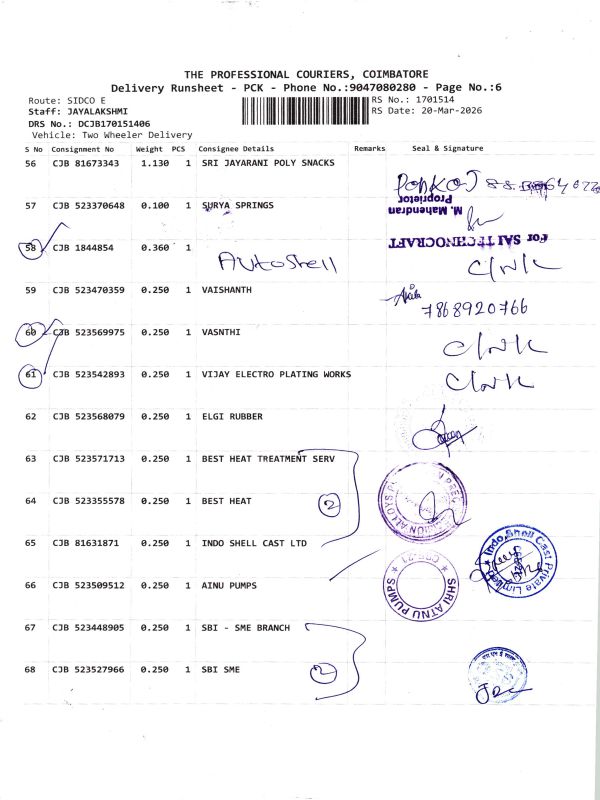 THE PROFESSIONAL COURIERS, COIMBATORE
Delivery Runsheet - PCK - Phone No.:9047080280 - Page No.:6
Route: SIDCO E
RS No.: 1701514
Staff: JAYALAKSHMI
RS Date: 20-Mar-2026
DRS No.: DCJB170151406
Vehicle: Two Wheeler Delivery
S No Consignment No Weight PCS Consignee Details Remarks Seal & Signature
56 CJB 81673343 1.130 1 SRI JAYARANI POLY SNACKS
57 CJB 523370648 0.100 1 SURYA SPRINGS
M. Mahendran
Proprietor
For SAI TECHNOCRAFT
58 CJB 1844854 0.360 1
Autoshell
59 CJB 523470359 0.250 1 VAISHANTH
7868920766
60 CJB 523569975 0.250 1 VASNTHI
61 CJB 523542893 0.250 1 VIJAY ELECTRO PLATING WORKS
62 CJB 523568079 0.250 1 ELGI RUBBER
63 CJB 523571713 0.250 1 BEST HEAT TREATMENT SERV
64 CJB 523355578 0.250 1 BEST HEAT 2
65 CJB 81631871 0.250 1 INDO SHELL CAST LTD
Indo Shell Cast Private Limited
66 CJB 523509512 0.250 1 AINU PUMPS
67 CJB 523448905 0.250 1 SBI - SME BRANCH
68 CJB 523527966 0.250 1 SBI SME 2